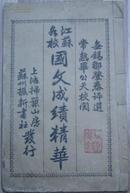 無錫鄒登泰評選
常熟畢公天校閱
江蘇各校
國文成績精華
上海掃葉山房
蘇州振新書社
發行